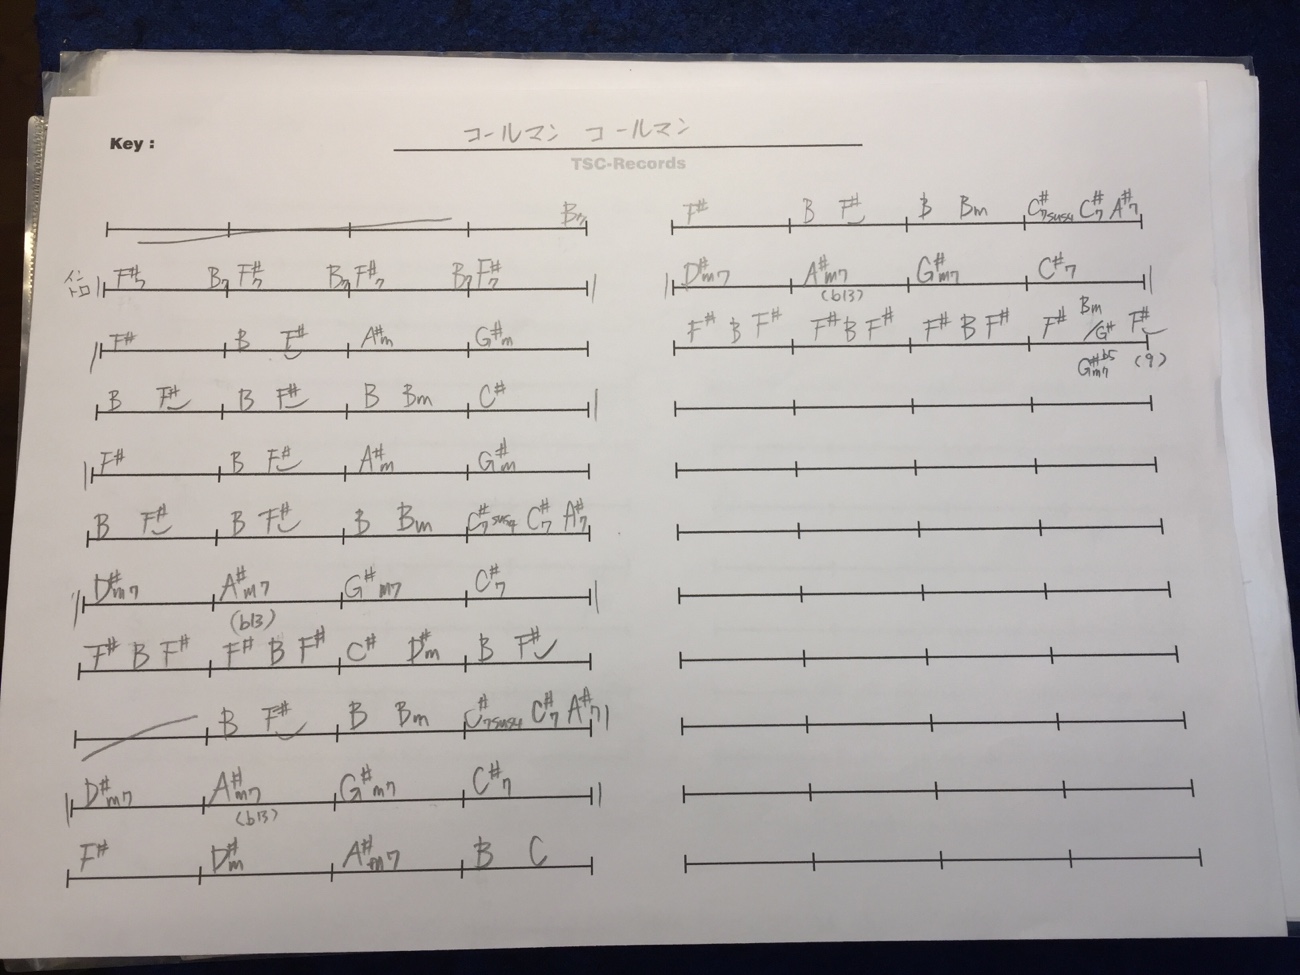 Key :
コールマン コールマン
TSC-Records
B7
イントロ F#7 B7 F#7 B7 F#7 B7 F#7
F# B F# A#m G#m
B F# B F# B Bm C#
F# B F# A#m G#m
B F# B F# B Bm C#7sus4 C#7 A#7
D#m7 A#m7 G#m7 C#7
(b13)
F# B F# F# B F# C# D#m B F#
B F# B Bm C#7sus4 C#7 A#7
D#m7 A#m7 G#m7 C#7
(b13)
F# D#m A#m7 B C
F# B F# B Bm C#7sus4 C#7 A#7
D#m7 A#m7 G#m7 C#7
(b13)
F# B F# F# B F# F# B F# F# Bm/G# F#
G#m7b5 (9)